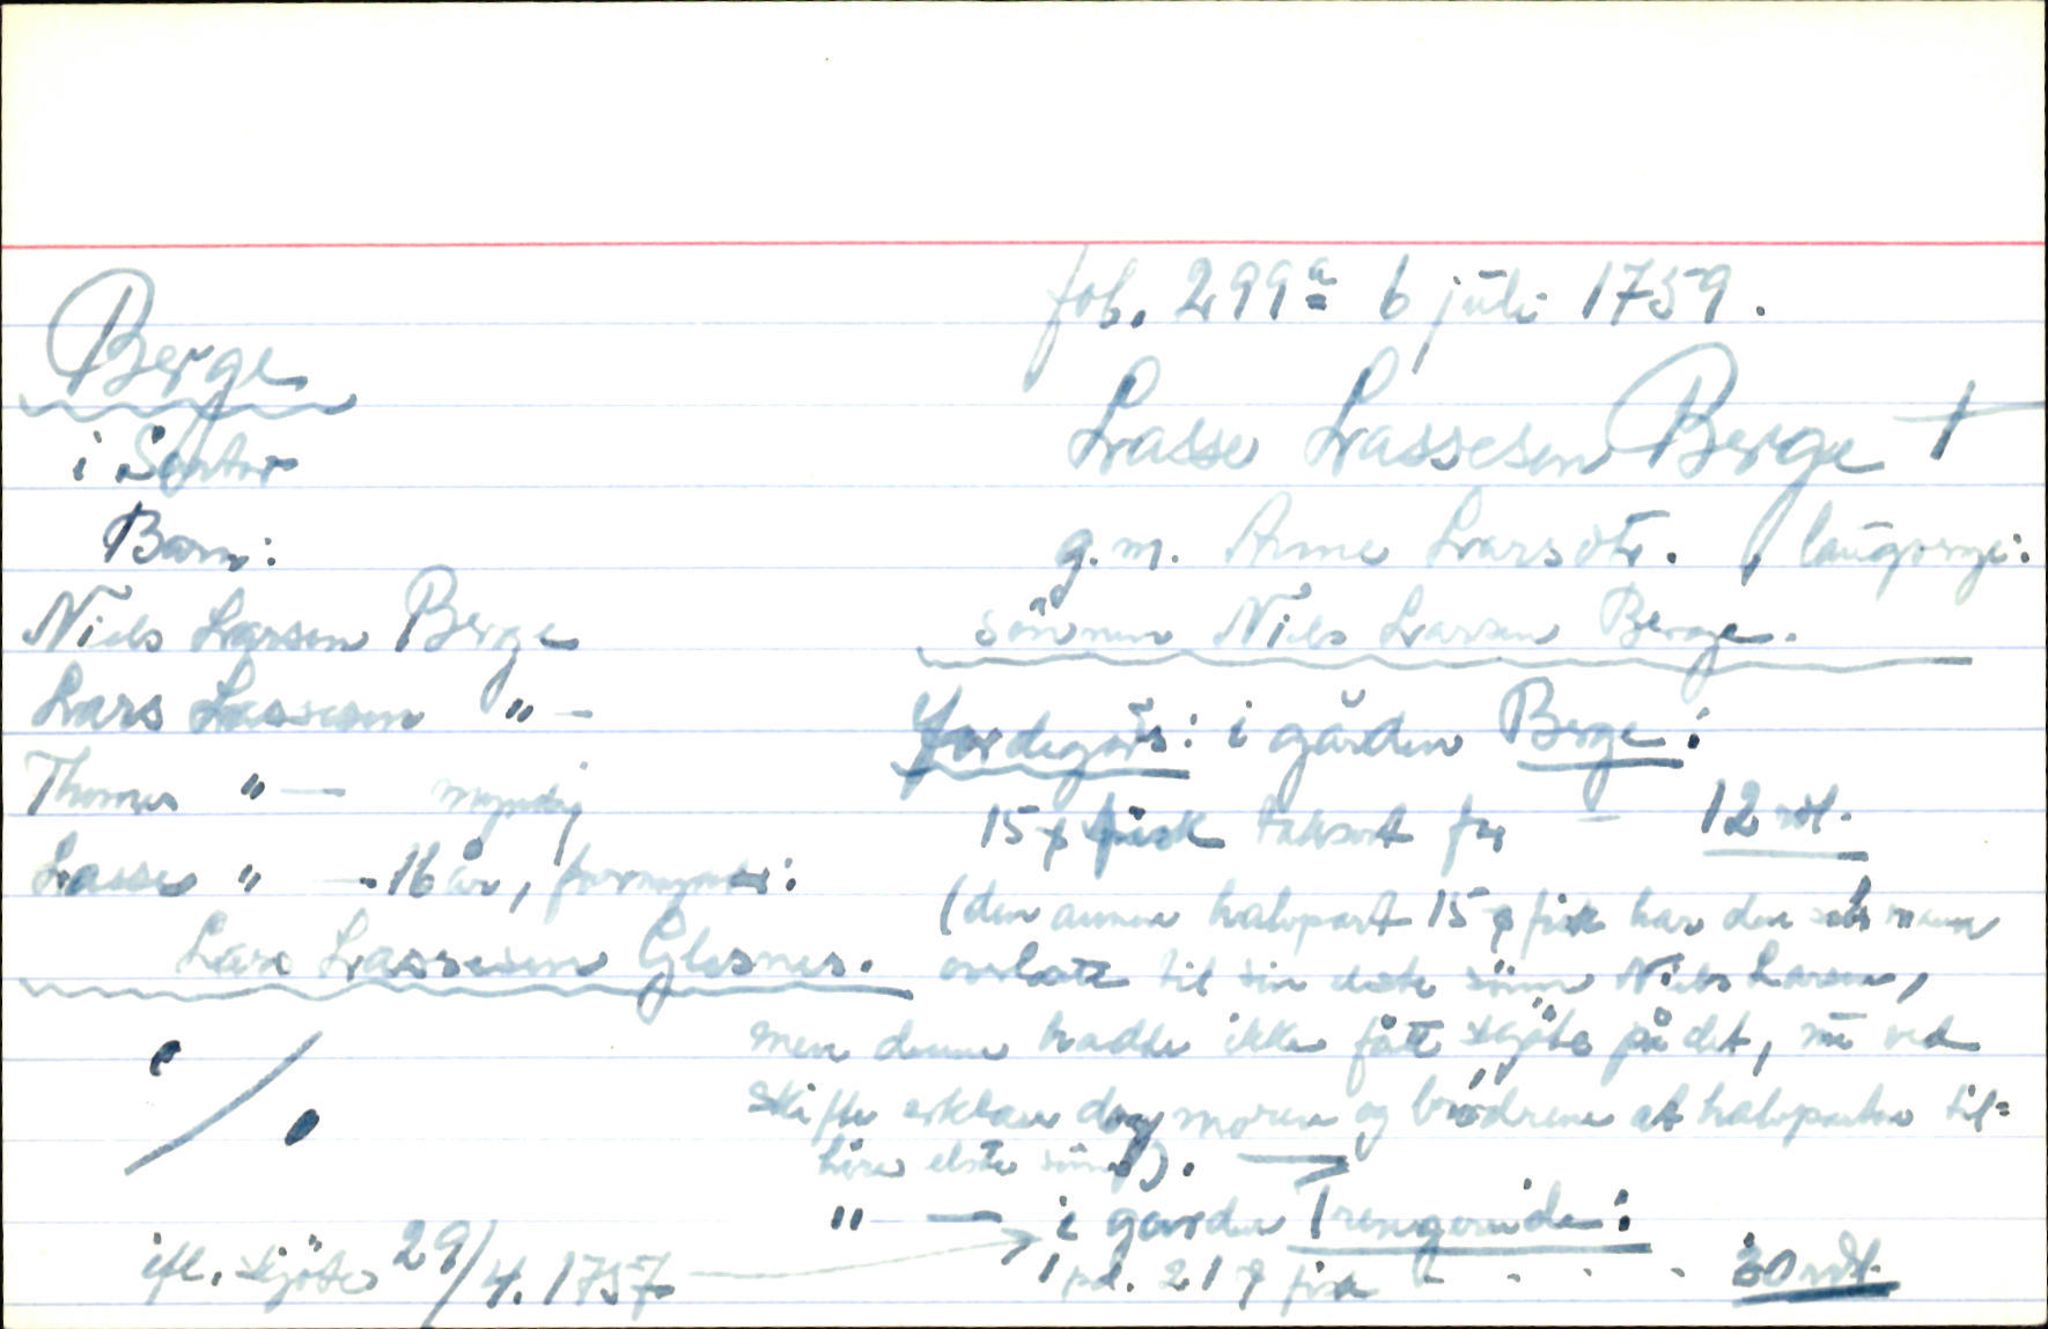 fol. 299a 6 juli 1759.
Berge
Lasse Lassesen Berge †
i Sartor
g.m. Anne Larsdtr. laugverge:
sönnen Niels Larsen Berge.
Barn:
Niels Larsen Berge
Lars Lassesen " —
Thomes " — myndig
Lasse " — 16 år, formynder:
Lars Lassesen Glesnes.
Jordegods: i gården Berge:
15 ℔ fisk taksert for — 12 rdl.
(den annen halvpart 15 ℔ fisk har den sal. mann
overlatt til sin elste sönn Niels Larsen,
men denne hadde ikke fått skjöte på det, nu ved
skifte erklærer dog moren og brödrene at halvparten til=
hörer elste sönn).
" — i garden Trengereide:
ifl. skjöte 29/4. 1757
1 pd. 21 ℔ fisk - - - - 30 rdl.